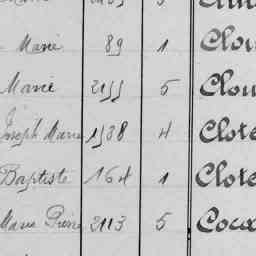 Marie 89 1 Clou
Marie 2155 5 Clou
Joseph Marie 1538 4 Clote
Baptiste 164 1 Clote
Marie Pierre 2113 5 Cocx